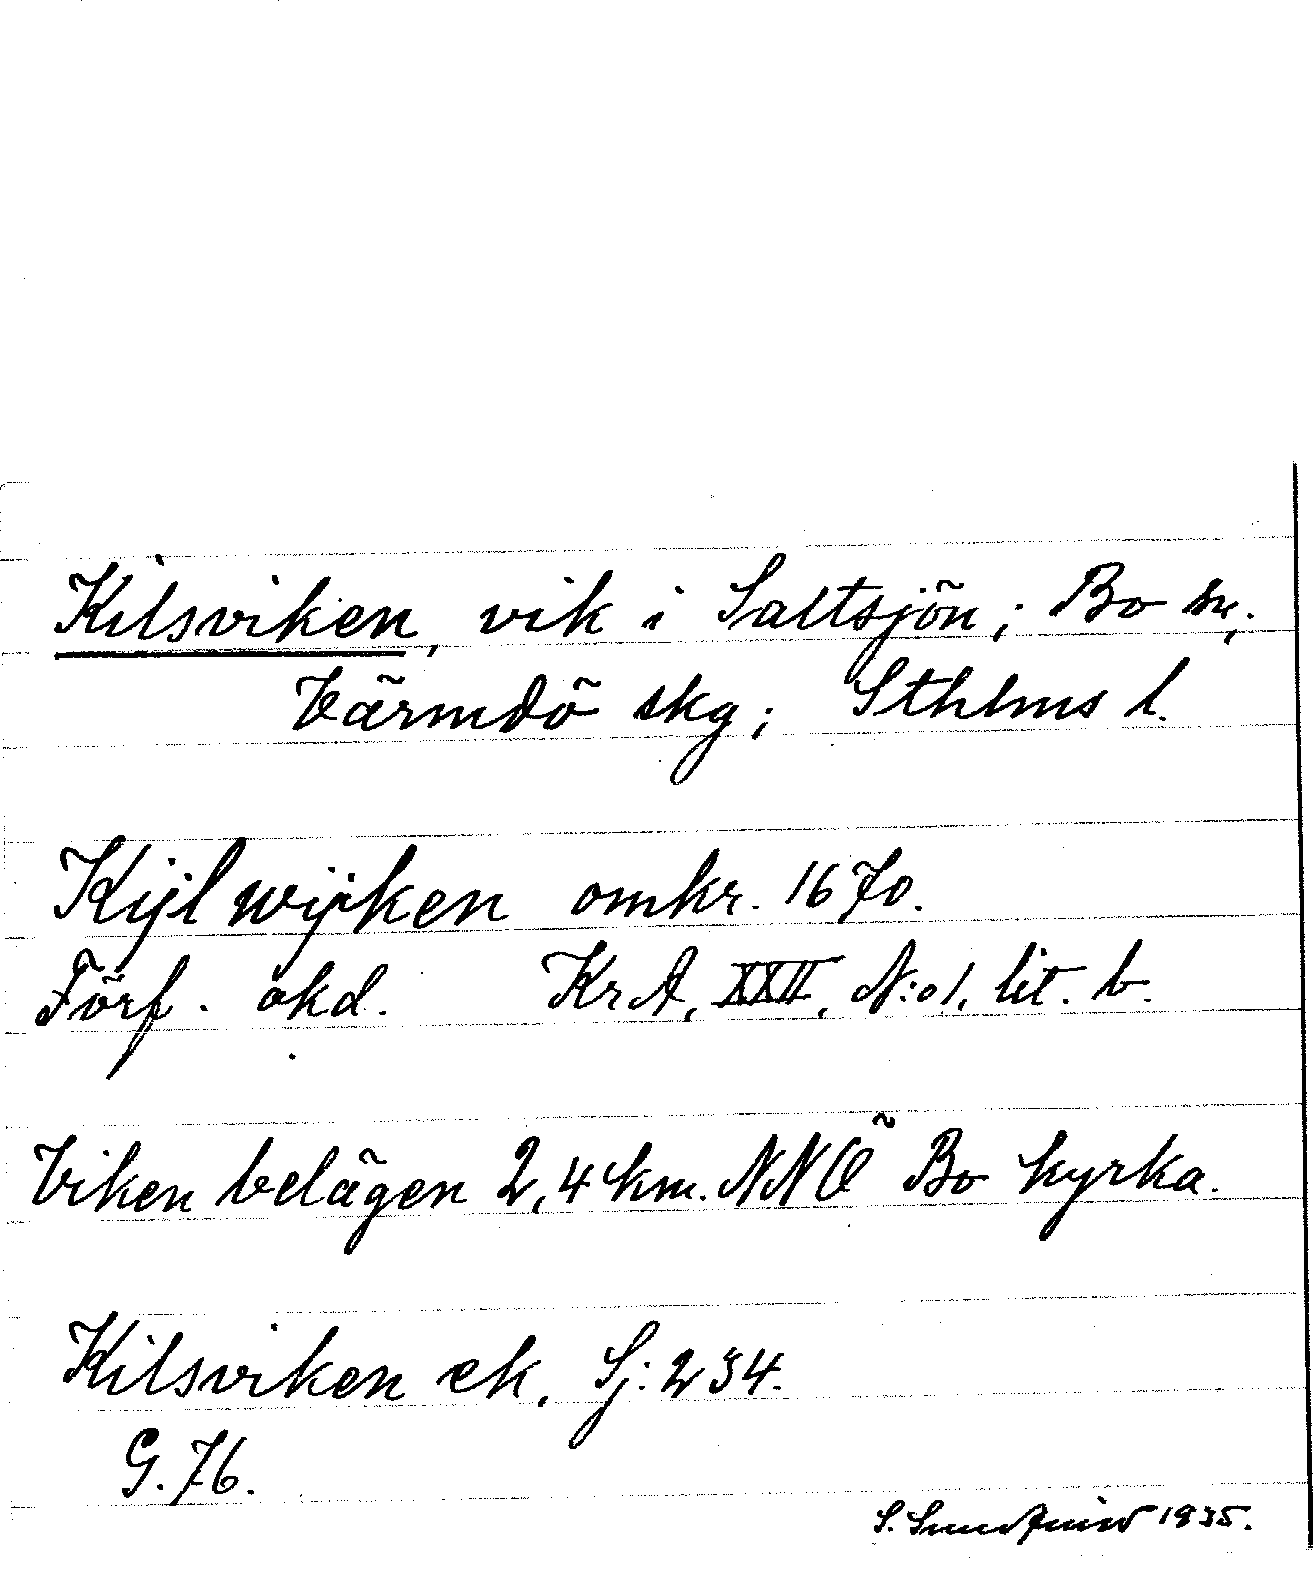 Kilsviken, vik i Saltsjön; Bo sn;
Värmdö skg; Sthlms l.
Kijlwijken omkr. 1670.
Förf. okd. KrA, XXII, N:o 1, lit. b.
Viken belägen 2,4 km. NNÖ Bo kyrka.
Kilsviken ek. Sj: 234.
G. 76.
S. 1935.